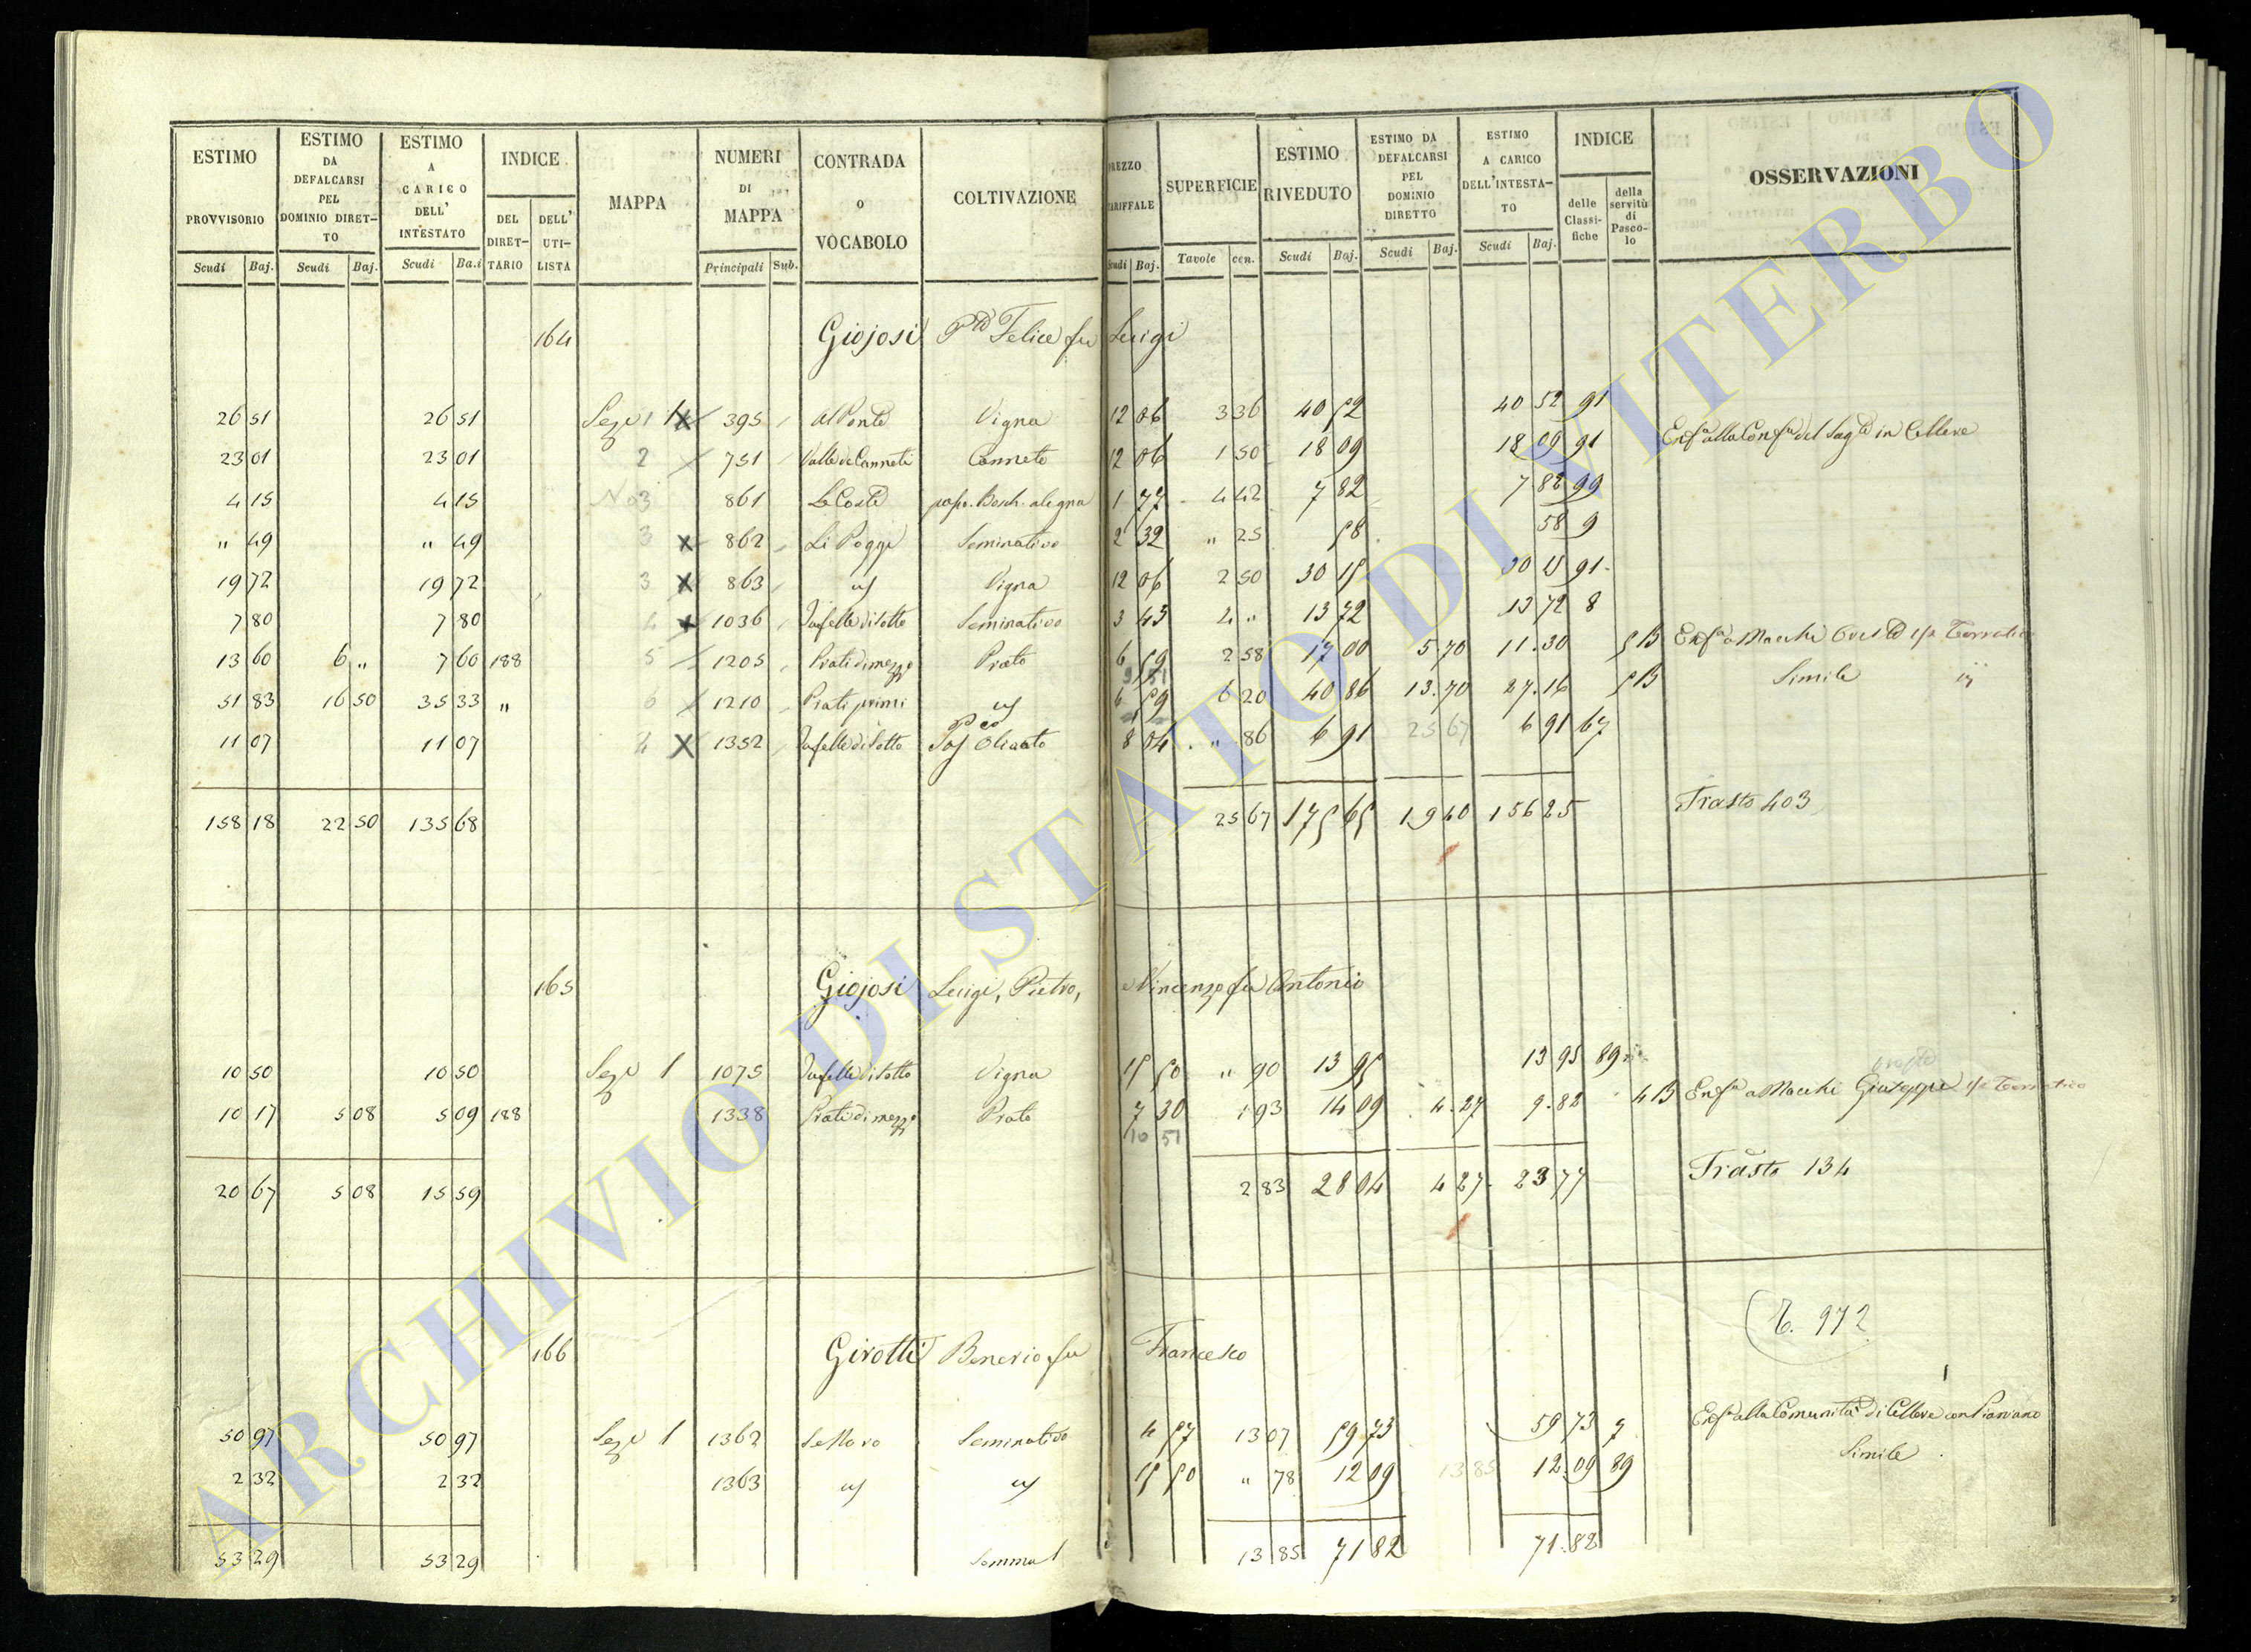 ESTIMO PROVVISORIO | ESTIMO DA DEFALCARSI PEL DOMINIO DIRETTO | ESTIMO A CARICO DELL' INTESTATO | INDICE | MAPPA | NUMERI DI MAPPA | CONTRADA o VOCABOLO | COLTIVAZIONE | PREZZO TARIFFALE | SUPERFICIE | ESTIMO RIVEDUTO | ESTIMO DA DEFALCARSI PEL DOMINIO DIRETTO | ESTIMO A CARICO DELL'INTESTATO | INDICE | OSSERVAZIONI
DEL DIRETTARIO | DELL' UTILISTA | delle Classifiche | della servitù di Pascolo
Scudi | Baj. | Scudi | Baj. | Scudi | Ba.i | Principali | Sub. | Scudi | Baj. | Tavole | cen. | Scudi | Baj. | Scudi | Baj. | Scudi | Baj.
164 Giojosi Felice fu Luigi
26 51 | 26 51 | Sez. 1 | 395 | Al Ponte | Vigna | 12 06 | 3 36 | 40 52 | 40 52 | 91
23 01 | 23 01 | 2 | 751 | Valle de Canneti | Canneto | 12 06 | 1 50 | 18 09 | 18 09 | 91 | Enfa alla Confa del Sagto in Cellere
4 15 | 4 15 | No 3 | 861 | Le Coste | 1 77 | 4 42 | 7 82 | 7 82 | 99
" 49 | " 49 | 3 x | 862 | Li Poggi | Seminativo | 2 32 | " 25 | 58 | 58 | 9
19 72 | 19 72 | 3 x | 863 | Vigna | 12 06 | 2 50 | 30 15 | 30 15 | 91
7 80 | 7 80 | 4 x | 1036 | Seminativo | 3 43 | 4 " | 13 72 | 13 72 | 8
13 60 | 6 " | 7 60 | 188 | 5 | 1205 | Prati di mezzo | Prato | 6 59 | 2 58 | 17 00 | 5 70 | 11.30 | 5 B | Enfa a Macchi
51 83 | 16 50 | 35 33 | " | 6 | 1210 | Prati primi | 6 59 | 6 20 | 40 86 | 13.70 | 27.16 | 5 B | Simile
11 07 | 11 07 | 4 X | 1352 | Olivato | 8 04 | " 86 | 6 91 | 25 67 | 6 91 | 67
158 18 | 22 50 | 135 68 | 25 67 | 175 65 | 19 40 | 156 25 | Trasto 403
165 Giojosi Luigi, Pietro, e Vincenzo fu Antonio
10 50 | 10 50 | Sez. 1 | 1075 | Vigna | 15 50 | " 90 | 13 95 | 13 95 | 89
10 17 | 5 08 | 5 09 | 188 | 1338 | Prati di mezzo | Prato | 7 30 | 1 93 | 14 09 | 4.27 | 9.82 | 4 B | Enfa a Macchi Giuseppe
10 51
20 67 | 5 08 | 15 59 | 2 83 | 28 04 | 4 27 | 23 77 | Trasto 134
972
166 Girotti Benerio fu Francesco
50 97 | 50 97 | Sez. 1 | 1362 | Seminativo | 4 57 | 13 07 | 59 73 | 59 73 | 7 | Enfa alla Comunità di Cellere con Pianiano
2 32 | 2 32 | 1363 | 15 50 | " 78 | 12 09 | 13 85 | 12.09 | 89 | Simile
53 29 | 53 29 | Somma | 13 85 | 71 82 | 71.82
ARCHIVIO DI STATO DI VITERBO